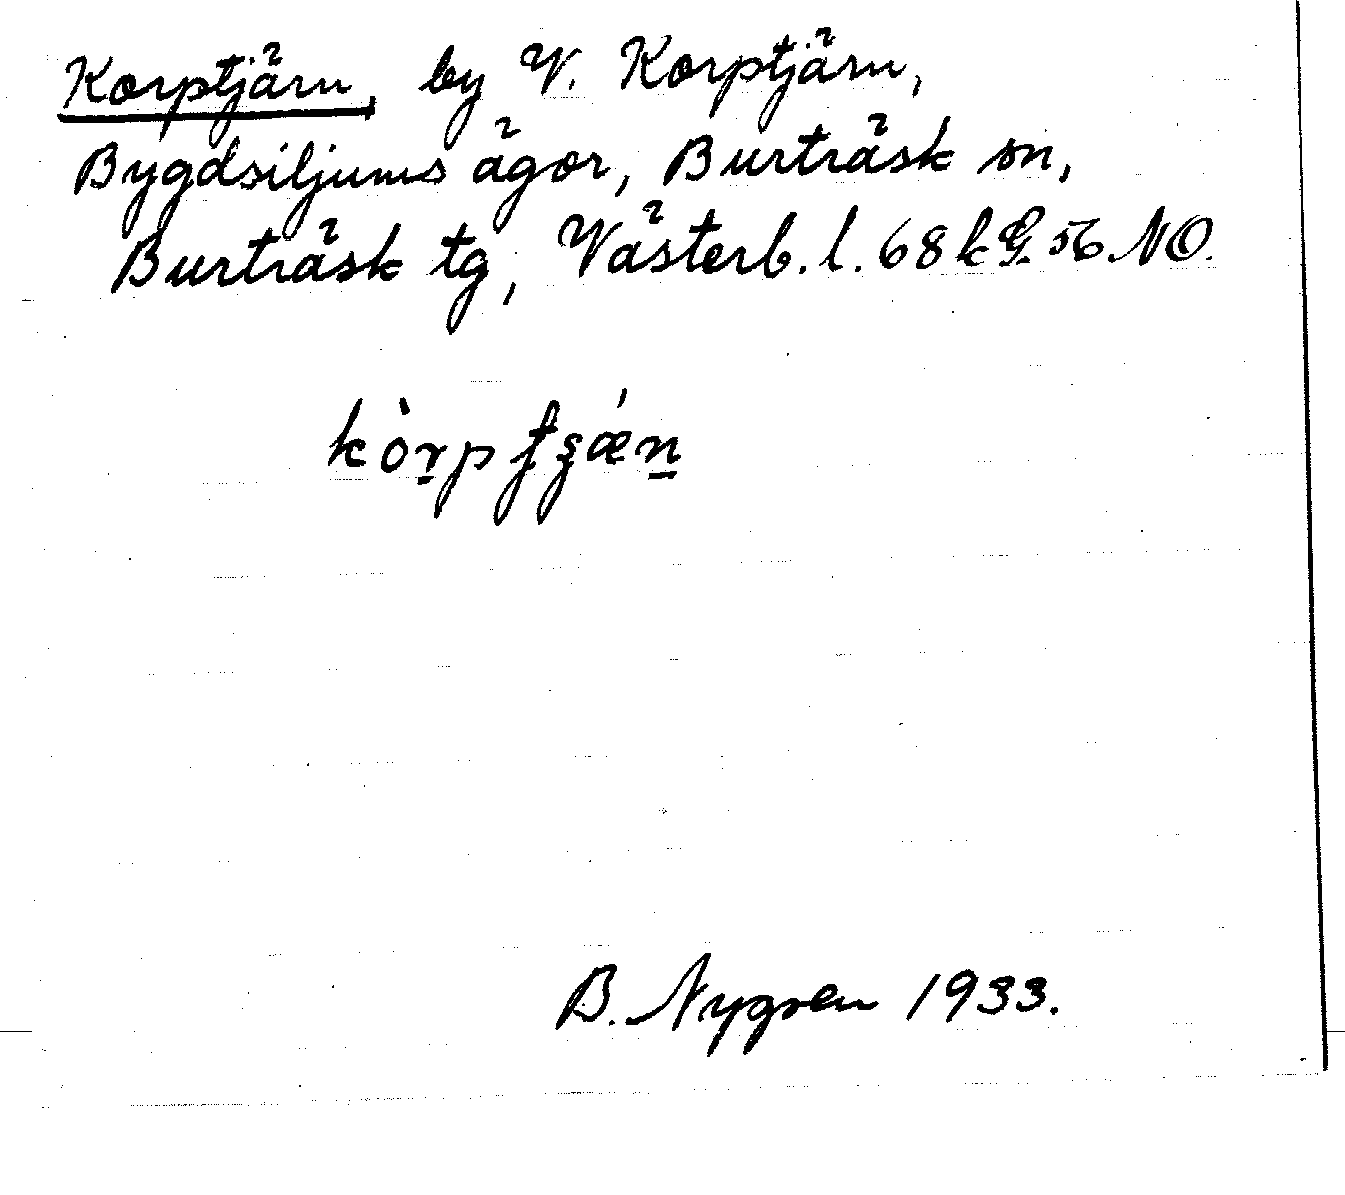 Korptjärn, by V. Korptjärn,
Bygdsiljums ägor, Burträsk sn,
Burträsk tg, Västerb. l. 68 k G. 56 NO.
kòrptʂǽn
B. Nygren 1933.